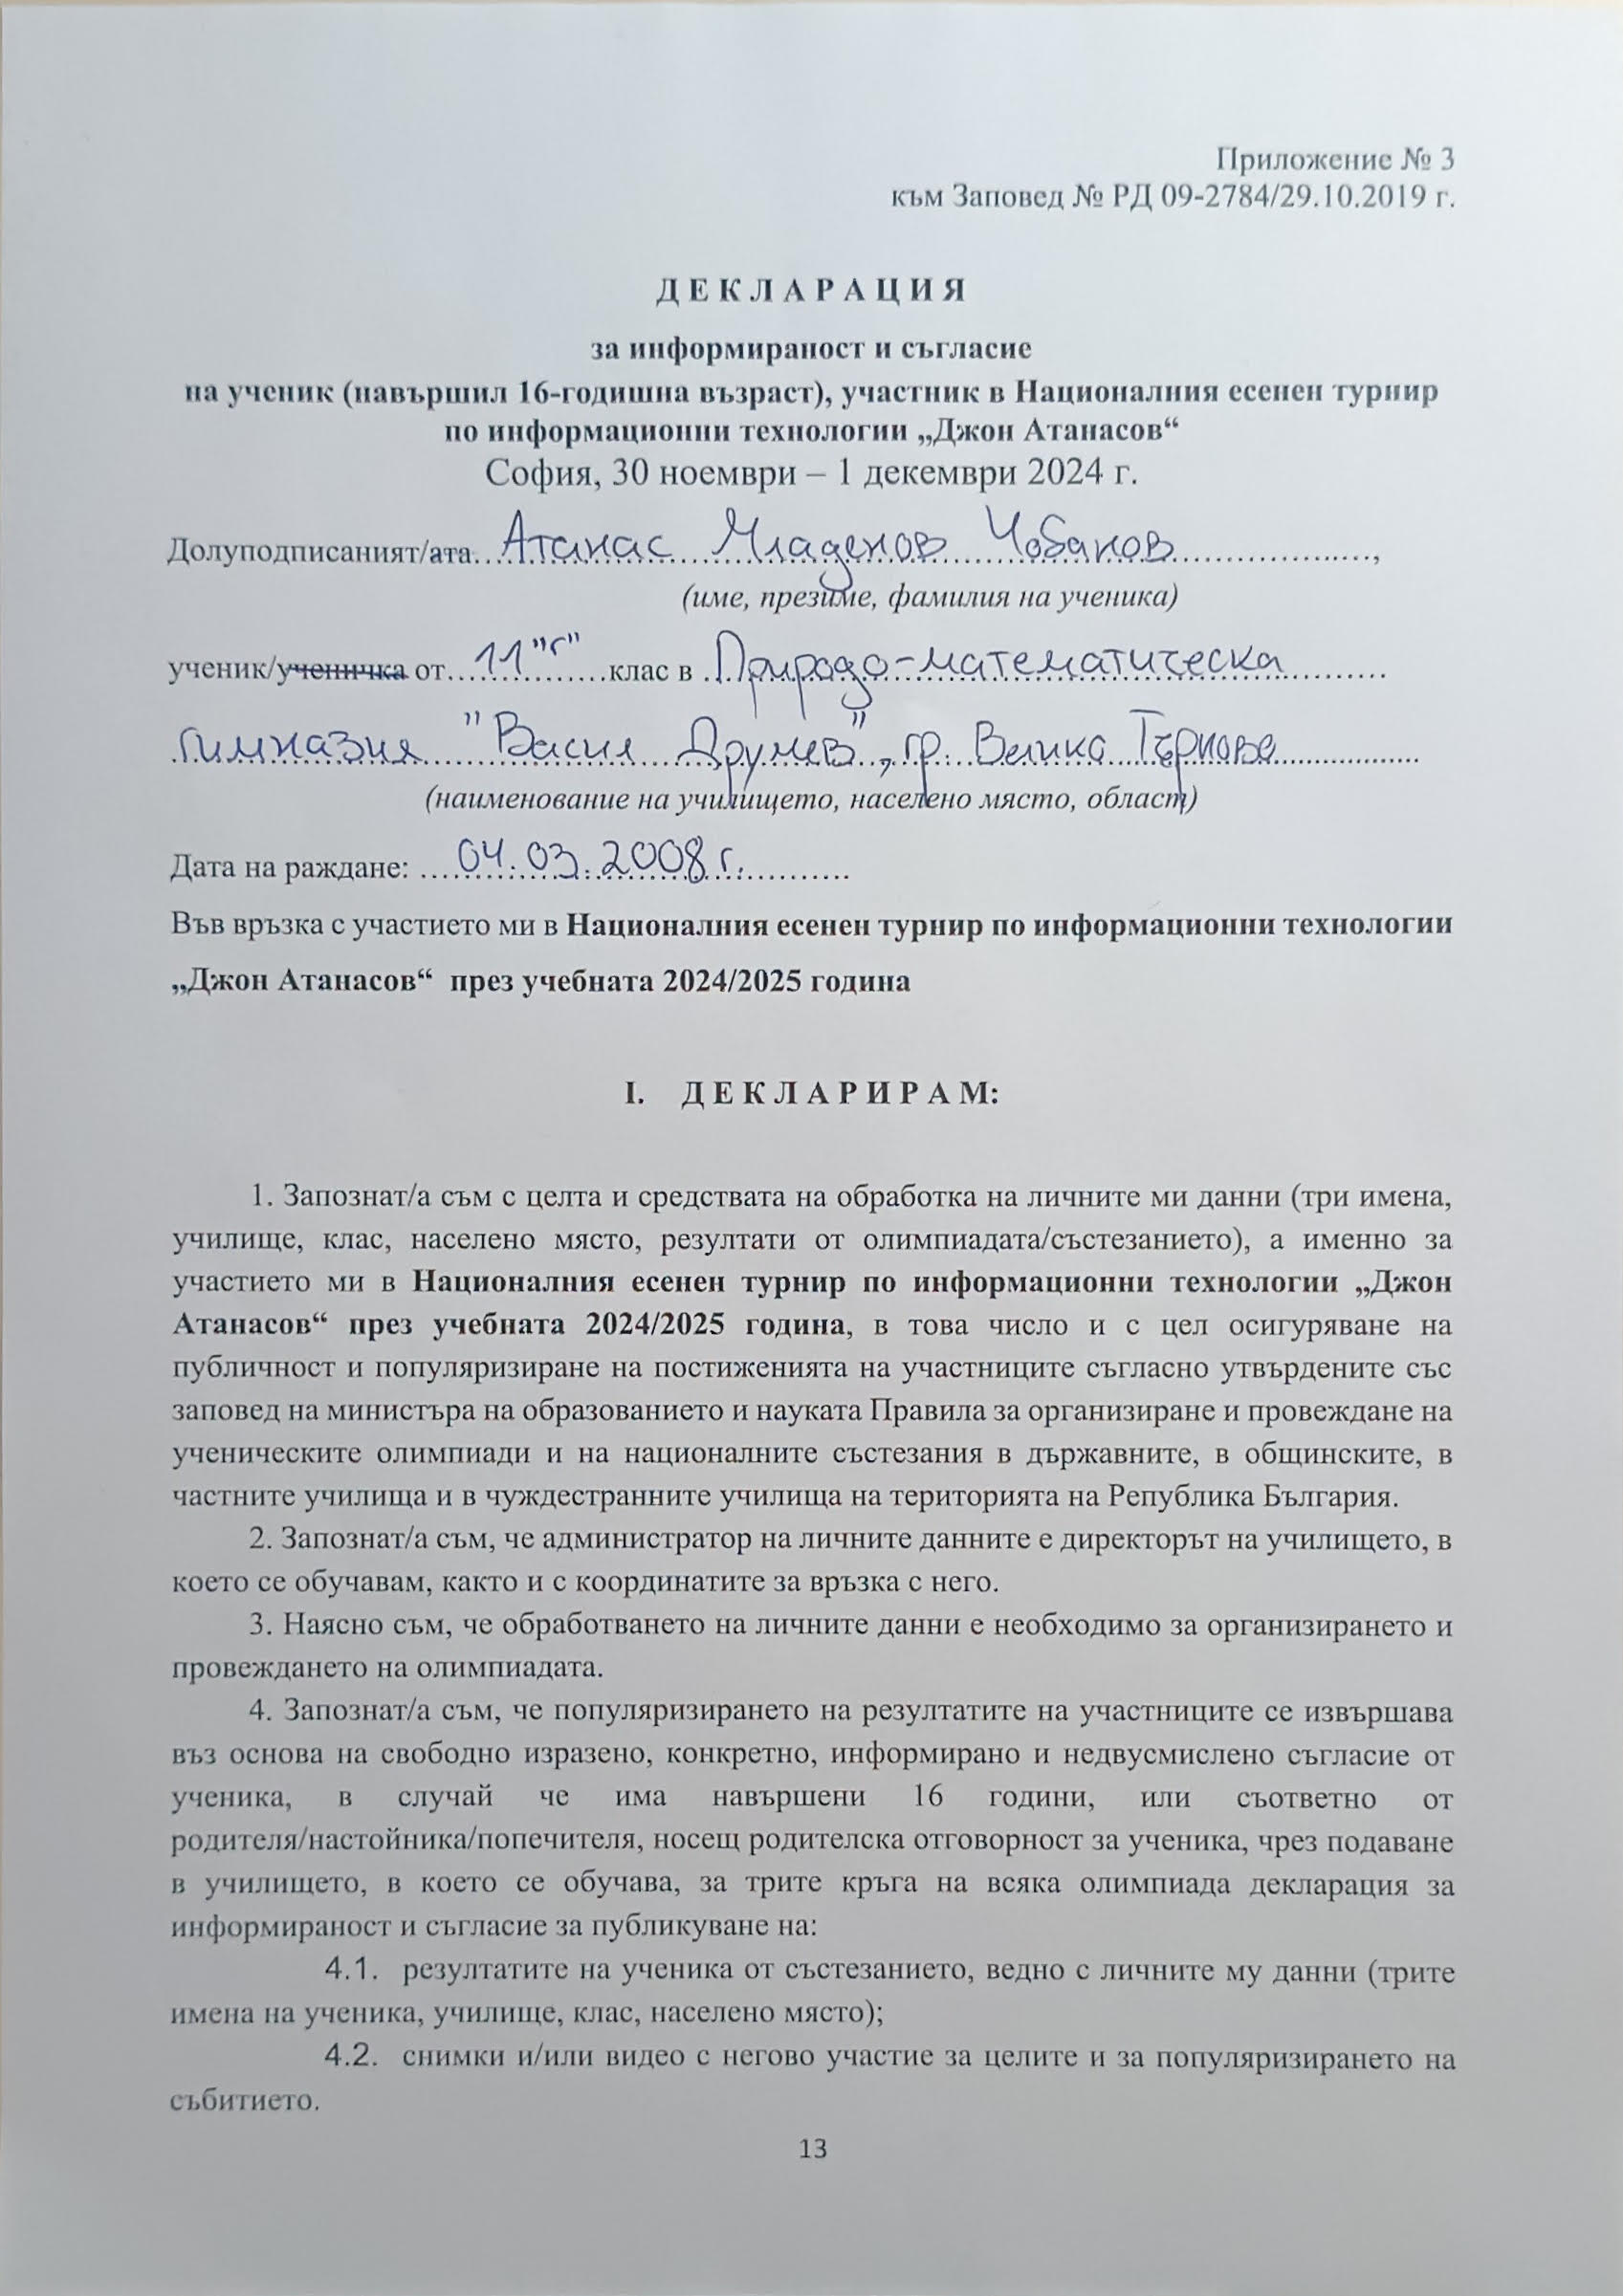 Приложение № 3
към Заповед № РД 09-2784/29.10.2019 г.
Д Е К Л А Р А Ц И Я
за информираност и съгласие
на ученик (навършил 16-годишна възраст), участник в Националния есенен турнир
по информационни технологии „Джон Атанасов“
София, 30 ноември – 1 декември 2024 г.
Долуподписаният/ата...Атанас Младенов Чобанов....................,
(име, презиме, фамилия на ученика)
ученик/ученичка от....11 "г"....клас в ..Природо-математическа..........
.гимназия "Васил Друмев", гр. Велико Търново..................
(наименование на училището, населено място, област)
Дата на раждане: ....04.03.2008 г.............
Във връзка с участието ми в Националния есенен турнир по информационни технологии
„Джон Атанасов“ през учебната 2024/2025 година
I. Д Е К Л А Р И Р А М:
1. Запознат/а съм с целта и средствата на обработка на личните ми данни (три имена,
училище, клас, населено място, резултати от олимпиадата/състезанието), а именно за
участието ми в Националния есенен турнир по информационни технологии „Джон
Атанасов“ през учебната 2024/2025 година, в това число и с цел осигуряване на
публичност и популяризиране на постиженията на участниците съгласно утвърдените със
заповед на министъра на образованието и науката Правила за организиране и провеждане на
ученическите олимпиади и на националните състезания в държавните, в общинските, в
частните училища и в чуждестранните училища на територията на Република България.
2. Запознат/а съм, че администратор на личните данните е директорът на училището, в
което се обучавам, както и с координатите за връзка с него.
3. Наясно съм, че обработването на личните данни е необходимо за организирането и
провеждането на олимпиадата.
4. Запознат/а съм, че популяризирането на резултатите на участниците се извършава
въз основа на свободно изразено, конкретно, информирано и недвусмислено съгласие от
ученика, в случай че има навършени 16 години, или съответно от
родителя/настойника/попечителя, носещ родителска отговорност за ученика, чрез подаване
в училището, в което се обучава, за трите кръга на всяка олимпиада декларация за
информираност и съгласие за публикуване на:
4.1. резултатите на ученика от състезанието, ведно с личните му данни (трите
имена на ученика, училище, клас, населено място);
4.2. снимки и/или видео с негово участие за целите и за популяризирането на
събитието.
13